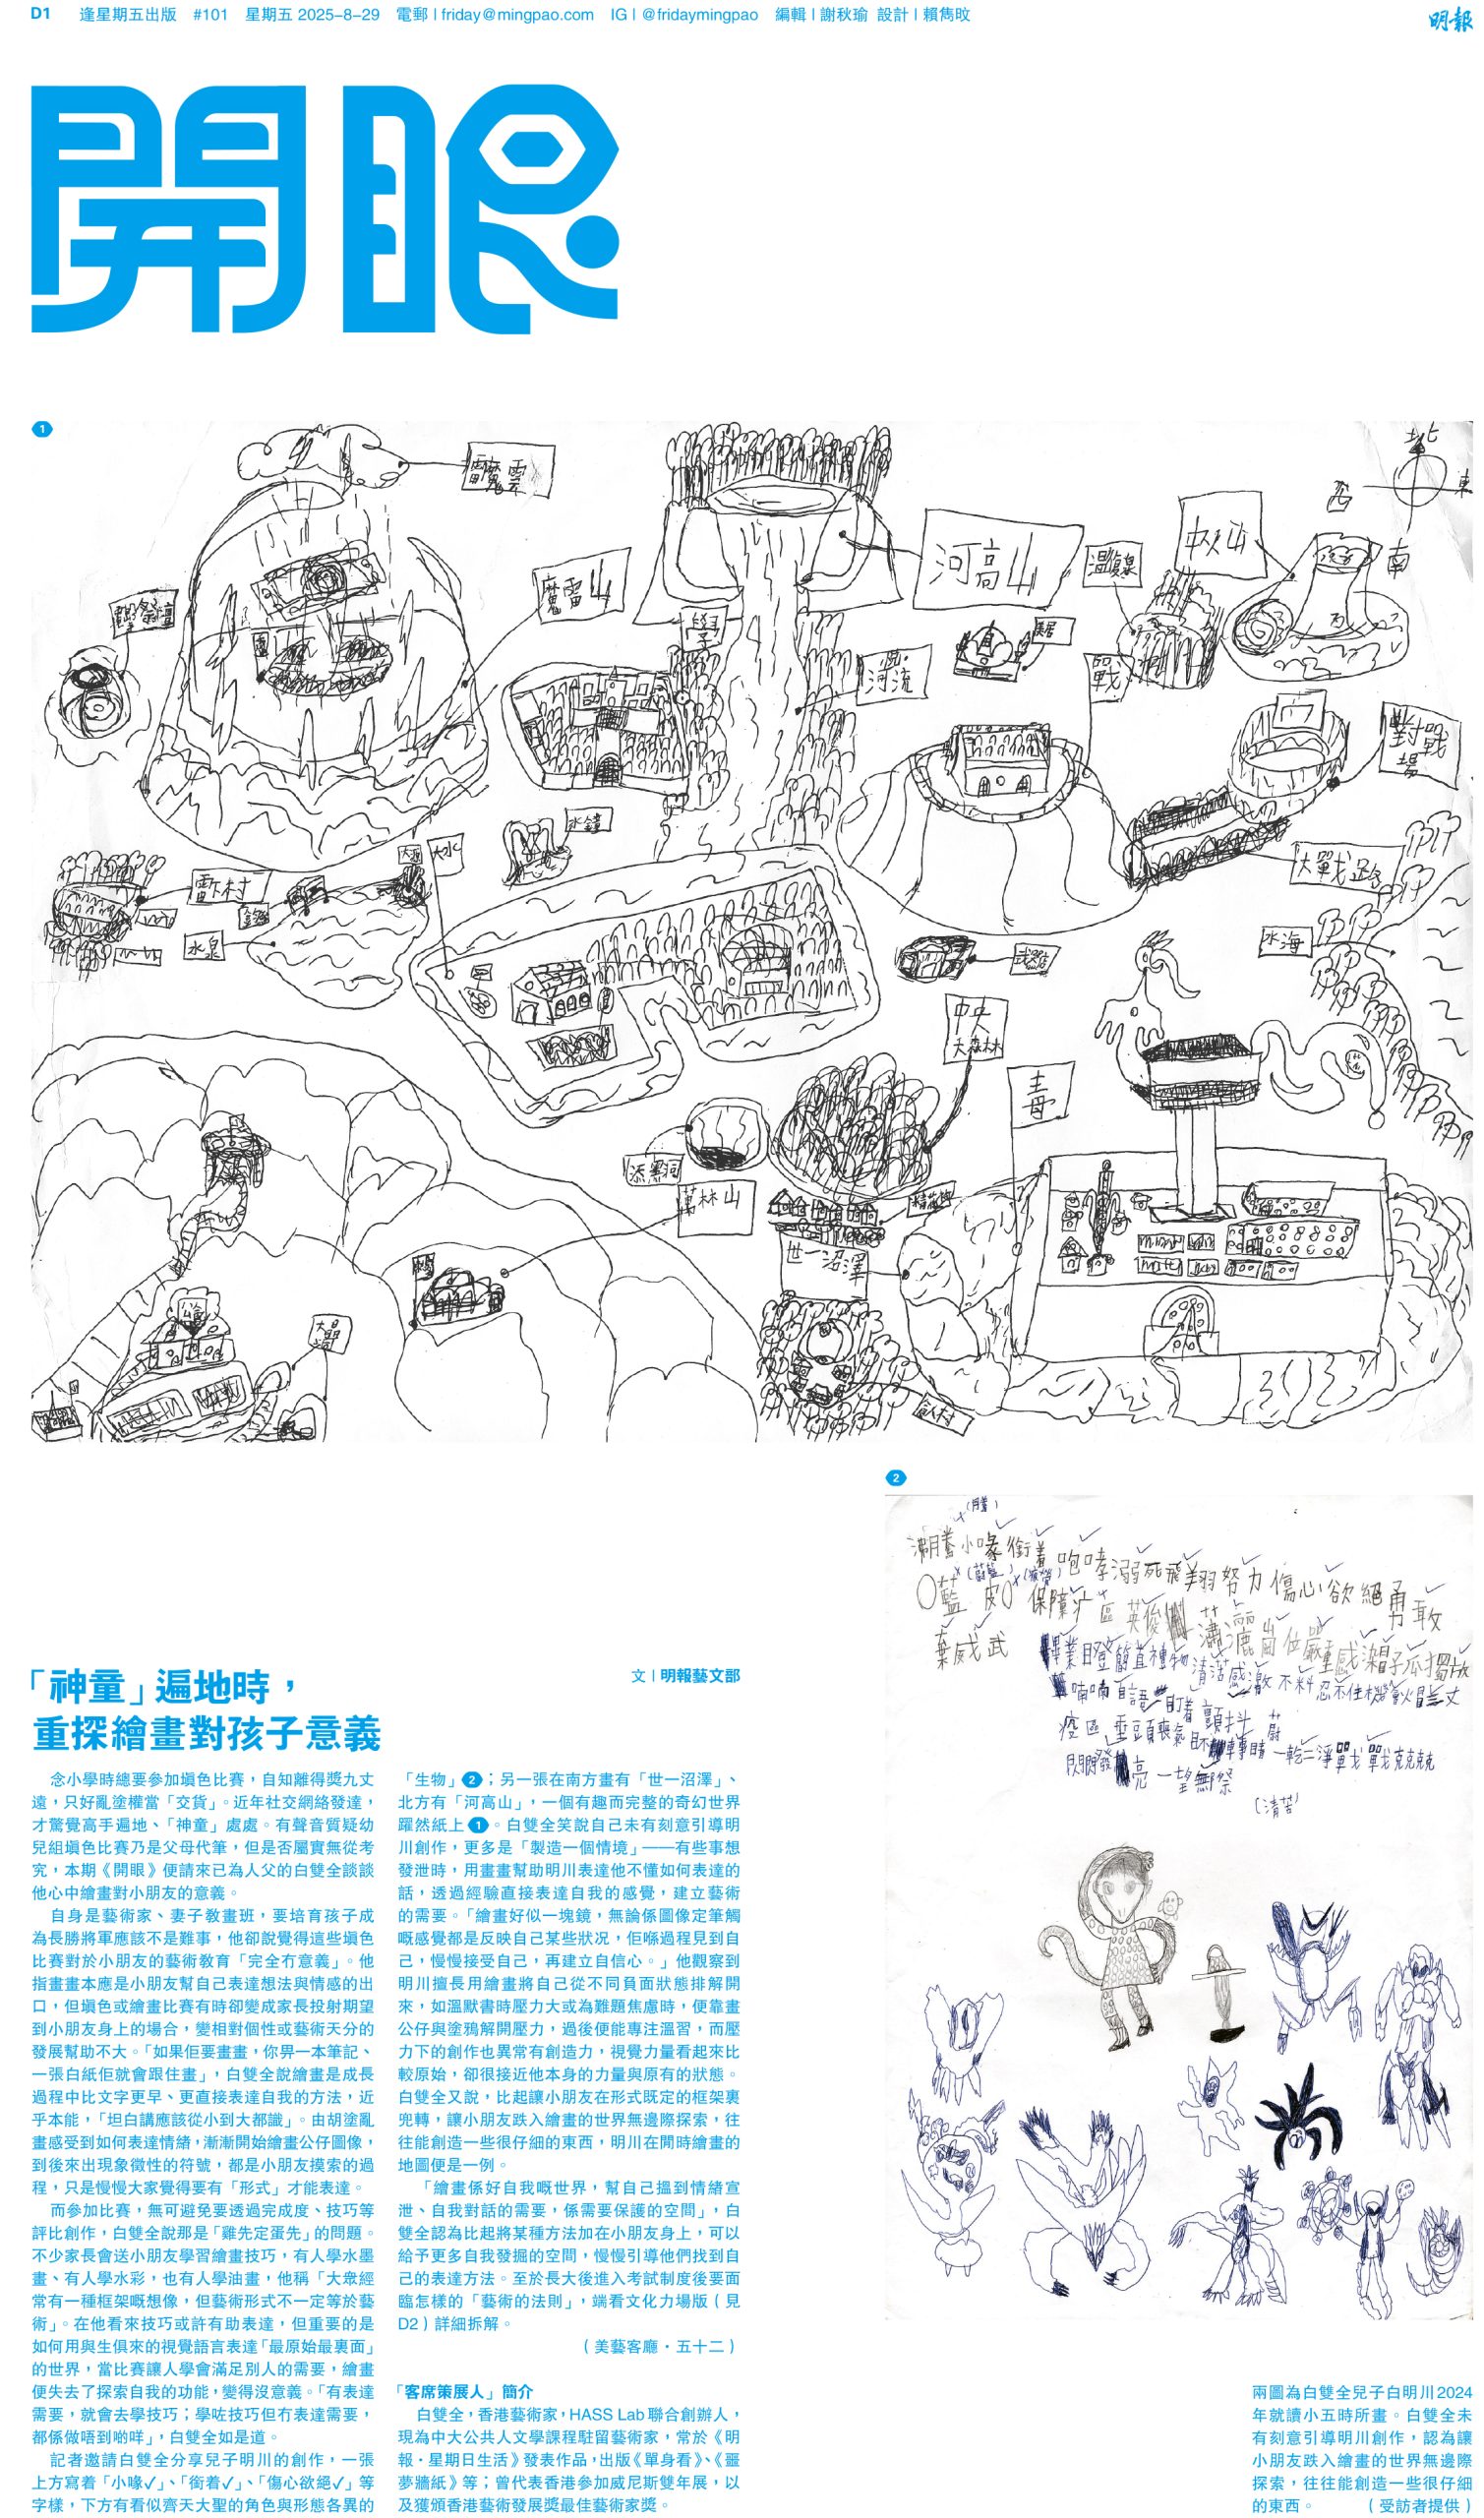 D1 逢星期五出版 #101 星期五 2025-8-29 電郵 | friday@mingpao.com IG | @fridaymingpao 編輯 | 謝秋瑜 設計 | 賴雋旼
明報
開眼
1
雷魔雲
魔雷山
河高山
中火山
北
東
西
南
河流
戰
對戰場
大戰路
水鐘
大水
雷下村
水泉
水海
武器店
中央
大森林
毒
添黑洞
萬林山
世一沼澤
2
小喙 銜着 咆哮 溺死 飛翔 努力 傷心欲絕 勇敢
保障 疒 區 英俊 瀟灑 崗位 嚴重 感染 帽子 孤獨
威武
畢業 瞪 簡直 植物 清潔 感激 不料 忍不住
喃喃自語 盯着 顫抖
疫區 垂頭喪氣 一乾二淨 戰戰克克克
閃閃發亮 一望無際
(清苦)
「神童」遍地時，
重探繪畫對孩子意義
文 | 明報藝文部
念小學時總要參加填色比賽，自知離得獎九丈
遠，只好亂塗權當「交貨」。近年社交網絡發達，
才驚覺高手遍地、「神童」處處。有聲音質疑幼
兒組填色比賽乃是父母代筆，但是否屬實無從考
究，本期《開眼》便請來已為人父的白雙全談談
他心中繪畫對小朋友的意義。
自身是藝術家、妻子教畫班，要培育孩子成
為長勝將軍應該不是難事，他卻說覺得這些填色
比賽對於小朋友的藝術教育「完全冇意義」。他
指畫畫本應是小朋友幫自己表達想法與情感的出
口，但填色或繪畫比賽有時卻變成家長投射期望
到小朋友身上的場合，變相對個性或藝術天分的
發展幫助不大。「如果佢要畫畫，你畀一本筆記、
一張白紙佢就會跟住畫」，白雙全說繪畫是成長
過程中比文字更早、更直接表達自我的方法，近
乎本能，「坦白講應該從小到大都識」。由胡塗亂
畫感受到如何表達情緒，漸漸開始繪畫公仔圖像，
到後來出現象徵性的符號，都是小朋友摸索的過
程，只是慢慢大家覺得要有「形式」才能表達。
而參加比賽，無可避免要透過完成度、技巧等
評比創作，白雙全說那是「雞先定蛋先」的問題。
不少家長會送小朋友學習繪畫技巧，有人學水墨
畫、有人學水彩，也有人學油畫，他稱「大眾經
常有一種框架嘅想像，但藝術形式不一定等於藝
術」。在他看來技巧或許有助表達，但重要的是
如何用與生俱來的視覺語言表達「最原始最裏面」
的世界，當比賽讓人學會滿足別人的需要，繪畫
便失去了探索自我的功能，變得沒意義。「有表達
需要，就會去學技巧；學咗技巧但冇表達需要，
都係做唔到啲咩」，白雙全如是道。
記者邀請白雙全分享兒子明川的創作，一張
上方寫着「小喙✓」、「銜着✓」、「傷心欲絕✓」等
字樣，下方有看似齊天大聖的角色與形態各異的
「生物」2；另一張在南方畫有「世一沼澤」、
北方有「河高山」，一個有趣而完整的奇幻世界
躍然紙上1。白雙全笑說自己未有刻意引導明
川創作，更多是「製造一個情境」——有些事想
發泄時，用畫畫幫助明川表達他不懂如何表達的
話，透過經驗直接表達自我的感覺，建立藝術
的需要。「繪畫好似一塊鏡，無論係圖像定筆觸
嘅感覺都是反映自己某些狀况，佢喺過程見到自
己，慢慢接受自己，再建立自信心。」他觀察到
明川擅長用繪畫將自己從不同負面狀態排解開
來，如溫默書時壓力大或為難題焦慮時，便靠畫
公仔與塗鴉解開壓力，過後便能專注溫習，而壓
力下的創作也異常有創造力，視覺力量看起來比
較原始，卻很接近他本身的力量與原有的狀態。
白雙全又說，比起讓小朋友在形式既定的框架裏
兜轉，讓小朋友跌入繪畫的世界無邊際探索，往
往能創造一些很仔細的東西，明川在閒時繪畫的
地圖便是一例。
「繪畫係好自我嘅世界，幫自己搵到情緒宣
泄、自我對話的需要，係需要保護的空間」，白
雙全認為比起將某種方法加在小朋友身上，可以
給予更多自我發掘的空間，慢慢引導他們找到自
己的表達方法。至於長大後進入考試制度後要面
臨怎樣的「藝術的法則」，端看文化力場版（見
D2）詳細拆解。
（美藝客廳・五十二）
「客席策展人」簡介
白雙全，香港藝術家，HASS Lab 聯合創辦人，
現為中大公共人文學課程駐留藝術家，常於《明
報・星期日生活》發表作品，出版《單身看》、《噩
夢牆紙》等；曾代表香港參加威尼斯雙年展，以
及獲頒香港藝術發展獎最佳藝術家獎。
兩圖為白雙全兒子白明川2024
年就讀小五時所畫。白雙全未
有刻意引導明川創作，認為讓
小朋友跌入繪畫的世界無邊際
探索，往往能創造一些很仔細
的東西。（受訪者提供）